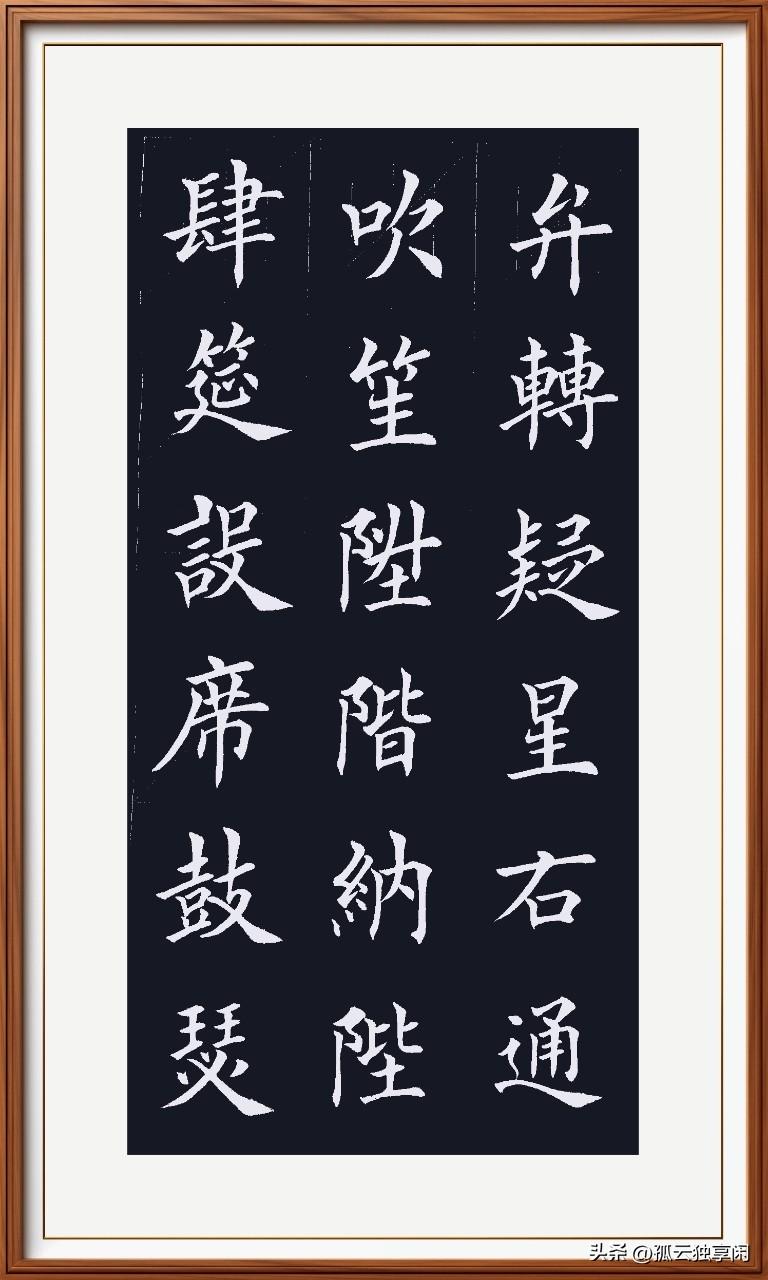 肆筵設席鼓瑟
吹笙陞階納陛
弁轉疑星右通
头条 @孤云独享闲